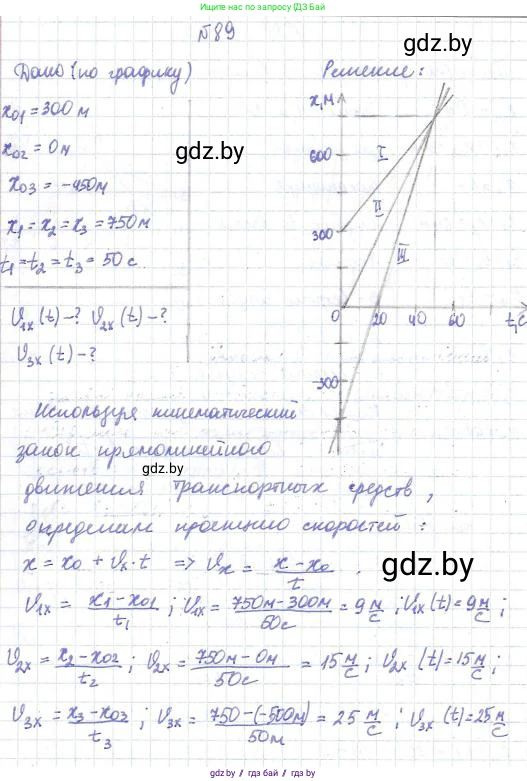 Ищите нас в поисковиках по запросу "ГДЗ Бай"
№89
gdz.by
Дано (по графику)
Решение:
x₀₁ = 300 м
x₀₂ = 0 м
x₀₃ = -450м
x₁ = x₂ = x₃ = 750м
t₁ = t₂ = t₃ = 50 с
gdz.by
V₁ₓ (t) -? V₂ₓ (t) -?
V₃ₓ (t) -?
x, м
600
300
0
20 40 60 t, c
300
I
II
III
Используя кинематический
закон прямолинейного
gdz.by
движения транспортных средств,
определим проекцию скоростей:
gdz.by
x = x₀ + Vₓ·t => Vₓ = (x - x₀)/t .
V₁ₓ = (x₁ - x₀₁)/t₁ ; V₁ₓ = (750м - 300м)/50с = 9 м/с ; V₁ₓ (t) = 9 м/с ;
V₂ₓ = (x₂ - x₀₂)/t₂ ; V₂ₓ = (750м - 0м)/50с = 15 м/с ; V₂ₓ (t) = 15 м/с ;
V₃ₓ = (x₃ - x₀₃)/t₃ ; V₃ₓ = (750 - (-500м))/50м = 25 м/с ; V₃ₓ (t) = 25 м/с
gdz.by / гдз бай / gdz by / гдз.by